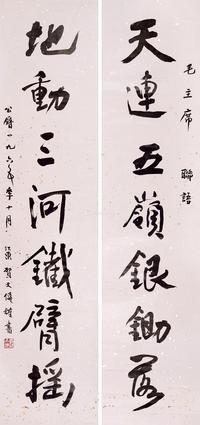 毛主席 聯語
天連五嶺銀鋤落
地動三河鐵臂搖
公曆一九六 年 十月 江東賀文 書